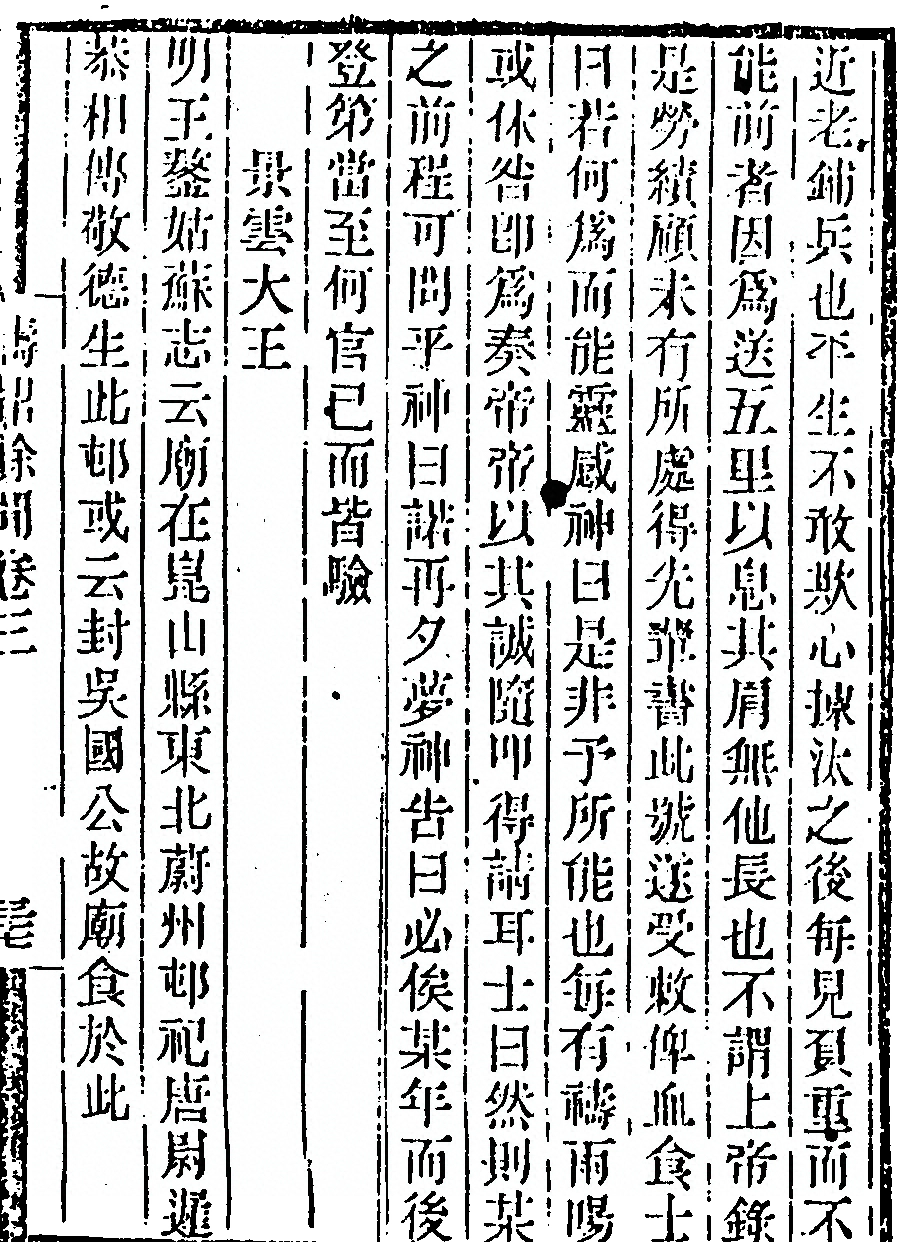 近老鋪兵也平生不敢欺心揀汰之後每見負重而不
能前者因爲送五里以息其肩無他長也不謂上帝錄
是勞績顧未有所處得先輩書此號遂受敕俾血食士
曰若何爲而能靈感神曰是非予所能也每有禱雨暘
或休咎即爲奏帝帝以其誠隨叩得請耳士曰然則某
之前程可問乎神曰諾再夕夢神告曰必俟某年而後
登第當至何官已而皆驗
景雲大王
明王鏊姑蘇志云廟在崑山縣東北蔚州邨祀唐尉遲
恭相傳敬德生此邨或云封吳國公故廟食於此
餘聞卷三